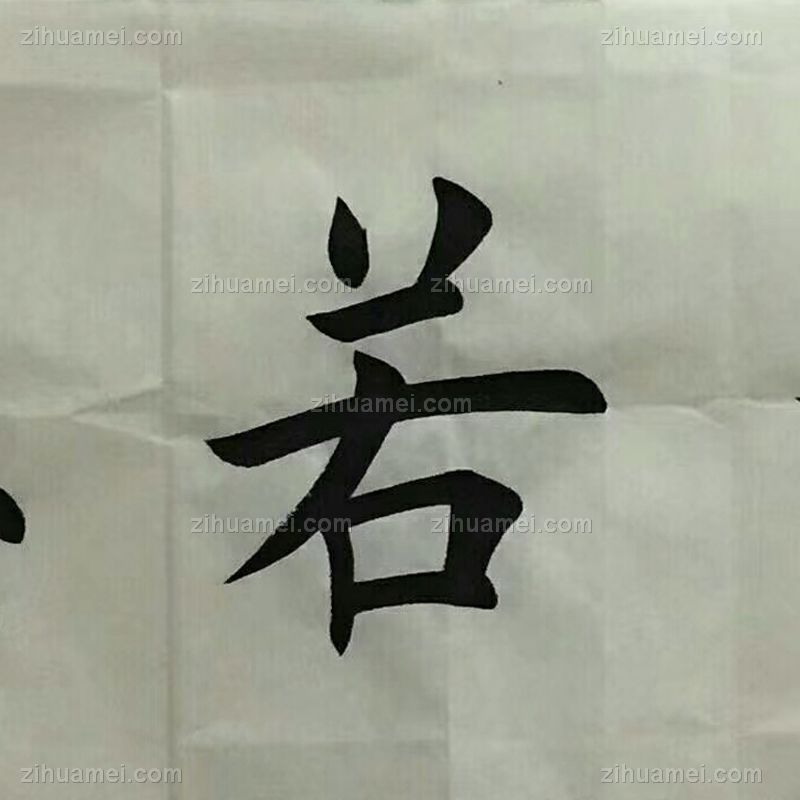 zihuamei.com zihuamei.com
zihuamei.com zihuamei.com
zihuamei.com
zihuamei.com zihuamei.com
zihuamei.com zihuamei.com
若